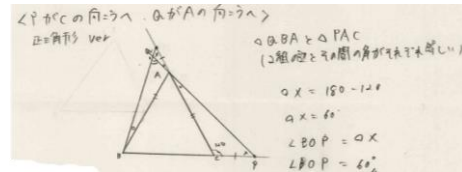 〈PがCの向こうへ、QがAの向こうへ〉
正三角形 ver
△QBAと△PAC
(2組の辺とその間の角がそれぞれ等しい)
○× = 180 - 120
○× = 60°
∠BOP = ○×
∠BOP = 60°
A
B
C
P
120